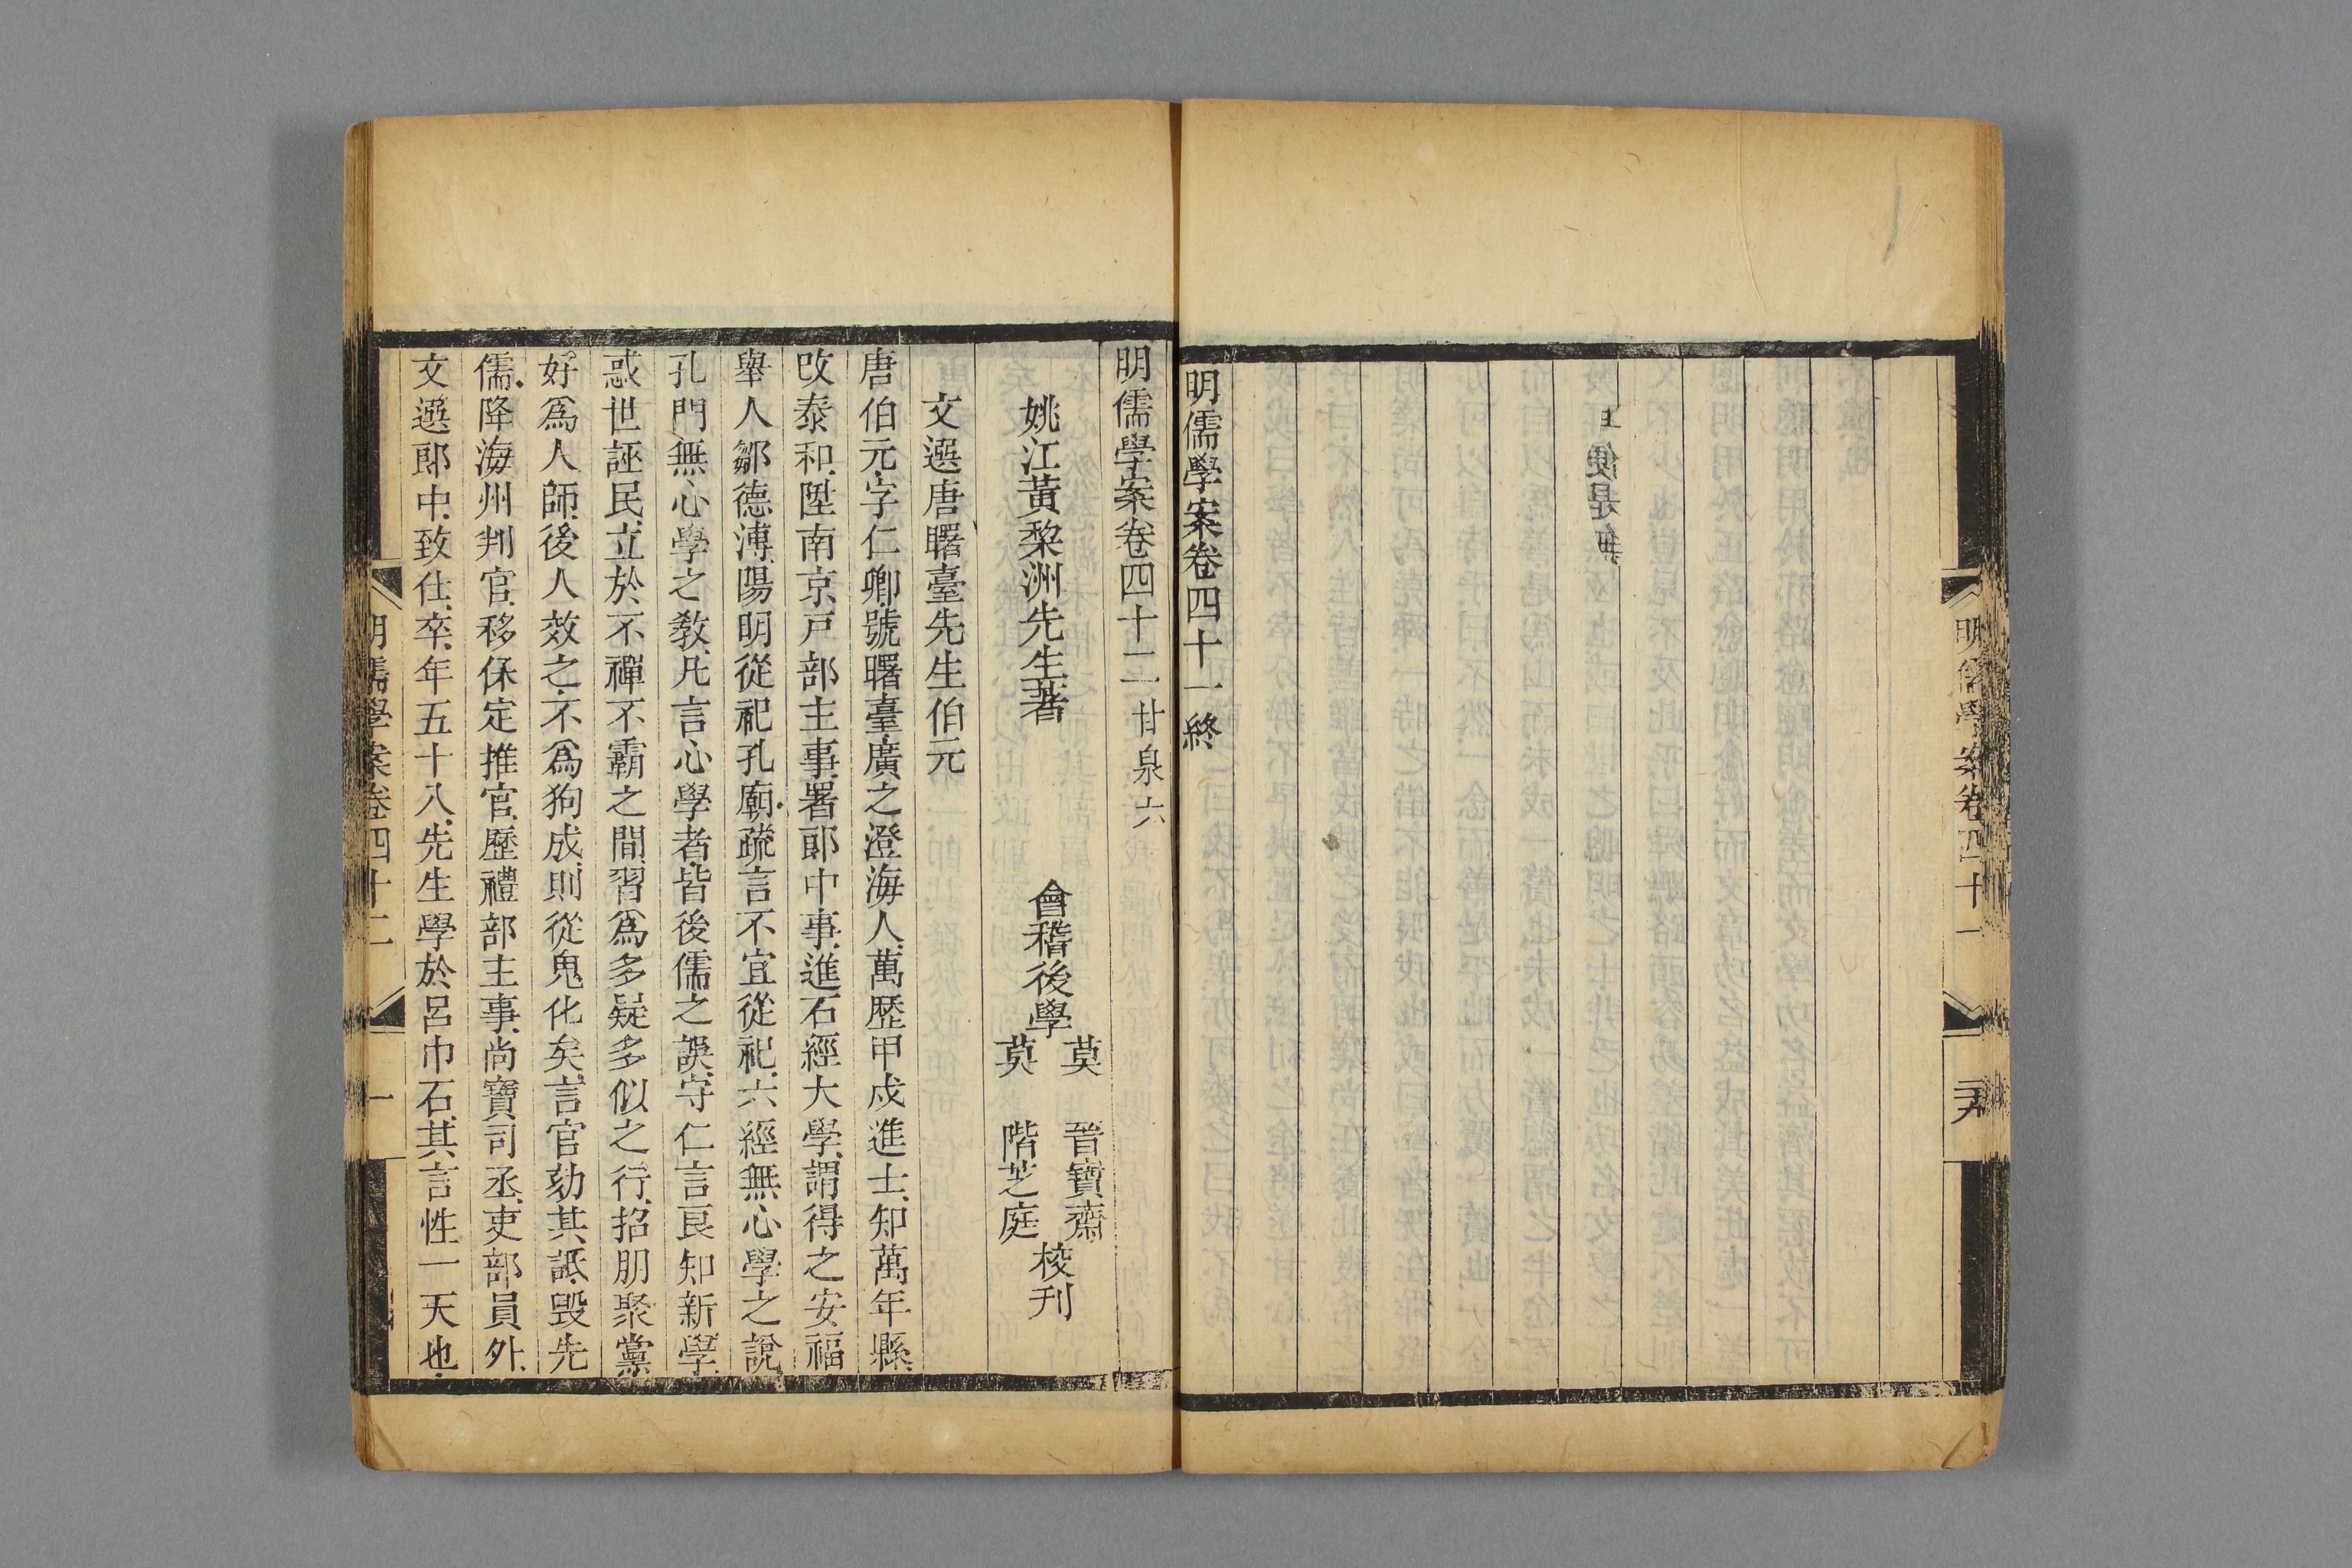 明儒學案卷四十一
明儒學案卷四十一終
明儒學案卷四十二 甘泉六
姚江黃棃洲先生著
會稽後學
莫 晉寶齋
莫 階芝庭
校刊
文選唐曙臺先生伯元
唐伯元字仁卿號曙臺廣之澄海人萬歷甲戍進士知萬年縣
改泰和陞南京戸部主事署郎中事進石經大學謂得之安福
舉人鄒德溥陽明從祀孔廟疏言不宜從祀六經無心學之說
孔門無心學之敎凡言心學者皆後儒之誤守仁言良知新學
惑世誣民立於不禪不霸之間習爲多疑多似之行招朋聚黨
好爲人師後人效之不爲狗成則從鬼化矣言官劾其詆毀先
儒降海州判官移保定推官歷禮部主事尚寶司丞吏部員外
文選郎中致仕卒年五十八先生學於呂巾石其言性一天也
明儒學案卷四十二
一